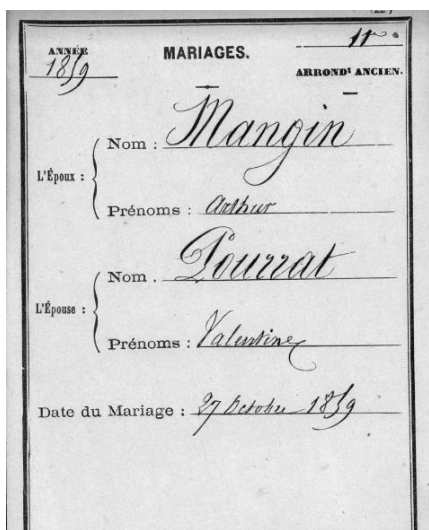 ANNÉE
1859
MARIAGES.
11e
ARRONDt ANCIEN.
L'Époux :
Nom : Mangin
Prénoms : Arthur
L'Épouse :
Nom . Pourrat
Prénoms : Valentine
Date du Mariage : 27 Octobre 1859